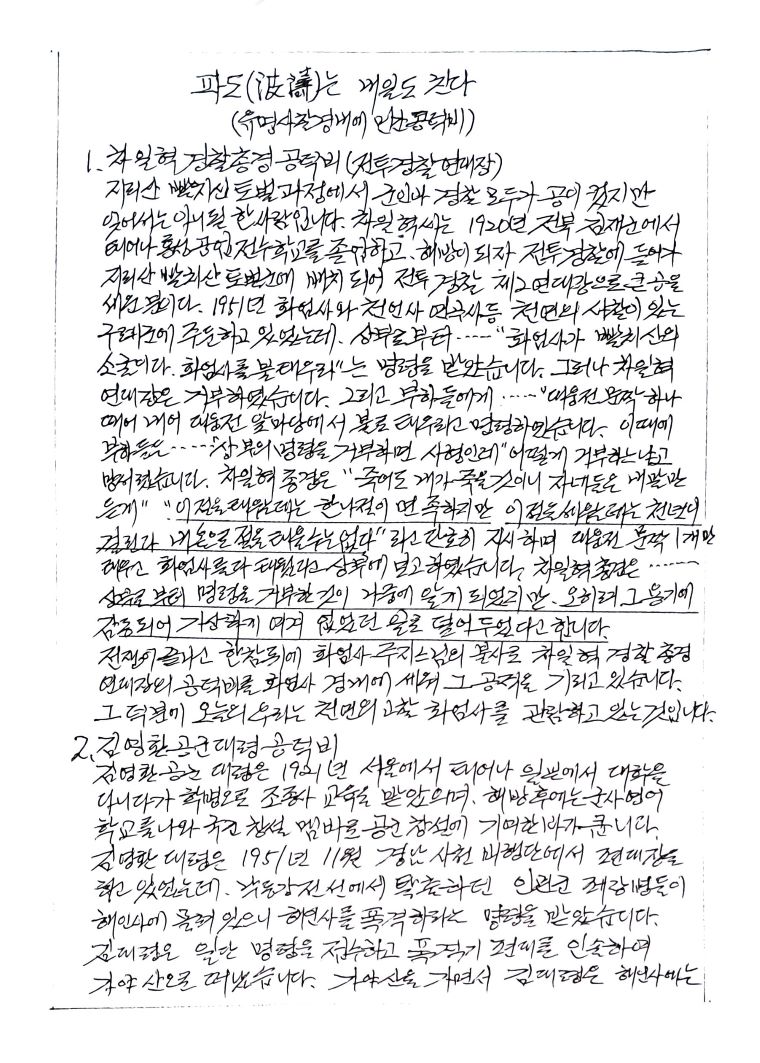 파도(波濤)는 내일도 친다
(유명사찰경내에 민간공덕비)
1. 차일혁 경찰총경 공덕비 (전투경찰연대장)
지리산 빨치산 토벌과정에서 군인과 경찰 모두가 공이 컸지만
잊어서는 아니될 한사람입니다. 차일혁씨는 1920년 전북 김제군에서
태어나 홍성공업전수학교를 졸업하고, 해방이 되자 전투경찰에 들어가
지리산 빨치산 토벌군에 배치되어 전투경찰 제2연대장으로 큰 공을
세운 분이다. 1951년 화엄사와 천언사 연곡사등 천년의 사찰이 있는
구례군에 주둔하고 있었는데. 상부로부터 ····· "화엄사가 빨치산의
소굴이다. 화엄사를 불태우라"는 명령을 받았습니다. 그러나 차일혁
연대장은 거부하였습니다. 그리고 부하들에게 ····· "대웅전 문짝하나
떼어 내어 대웅전 앞마당에서 불로 태우라고 명령하였습니다. 이때에
부하들은 ····· "상부의 명령을 거부하면 사형인데" 어떻게 거부하는냐고
망서렸습니다. 차일혁 총경은 "죽어도 내가 죽을것이니 자네들은 내말만
듣게" "이절을 태울때는 한나절이면 족하지만 이절을 세울때는 천년이
걸린다 내손으로 절을 태울수는 없다"라고 단호히 지시하며 대웅전 문짝 1개만
태우고 화엄사를 다 태웠다고 상부에 보고하였습니다. 차일혁총경은 ······
상부로부터 명령을 거부한것이 나중에 알게 되었지만. 오히려 그 용기에
감동되어 가상하게 여겨 없었던 일로 덮어두었다고 합니다.
전쟁이 끝나고 한참뒤에 화엄사 주지스님의 불사로 차일혁 경찰 총경
연대장의 공덕비를 화엄사 경내에 세워 그 공적을 기리고 있습니다.
그 덕분에 오늘의 우리는 천년의 고찰 화엄사를 관람하고 있는것입니다.
2. 김영환 공군대령 공덕비
김영환 공군 대령은 1921년 서울에서 태어나 일본에서 대학을
다니다가 학병으로 조종사 교육을 받았으며. 해방후에는 군사영어
학교를 나와 국군 창설 멤바로 공군 창설에 기여한바가 큽니다.
김영환 대령은 1951년 11월 경남 사천 비행단에서 편대장을
하고 있었는데. 낙동강전선에서 퇴각하던 인민군 패잔병들이
해인사에 몰려 있으니 해인사를 폭격하라는 명령을 받았습니다.
김대령은 일단 명령을 접수하고 폭격기 편대를 인솔하여
가야산으로 떠났습니다. 가야산을 가면서 김대령은 해인사에는